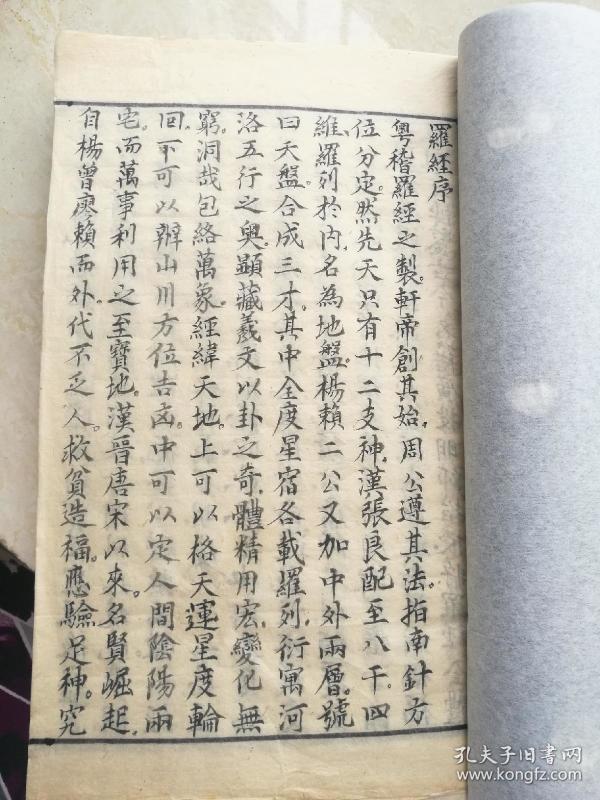 羅經序
粵稽羅經之製。軒帝創其始。周公遵其法。指南針方
位分定。然先天只有十二支神。漢張良配至八千。四
維。羅列於内。名為地盤。楊賴二公又加中外兩層。號
曰天盤。合成三才。其中全度星宿各載羅列。衍寓河
洛五行之奥。顯藏羲文以卦之奇。體精用宏。變化無
窮。洞哉包絡萬象。經緯天地。上可以格天運星度輪
回。下可以辨山川方位吉凶。中可以定人間陰陽兩
宅。而萬事利用之至寶地。漢晉唐宋以來。名賢崛起。
自楊曾廖賴而外。代不乏人。救貧造福。應驗足神。究
孔夫子旧書网
www.kongfz.com